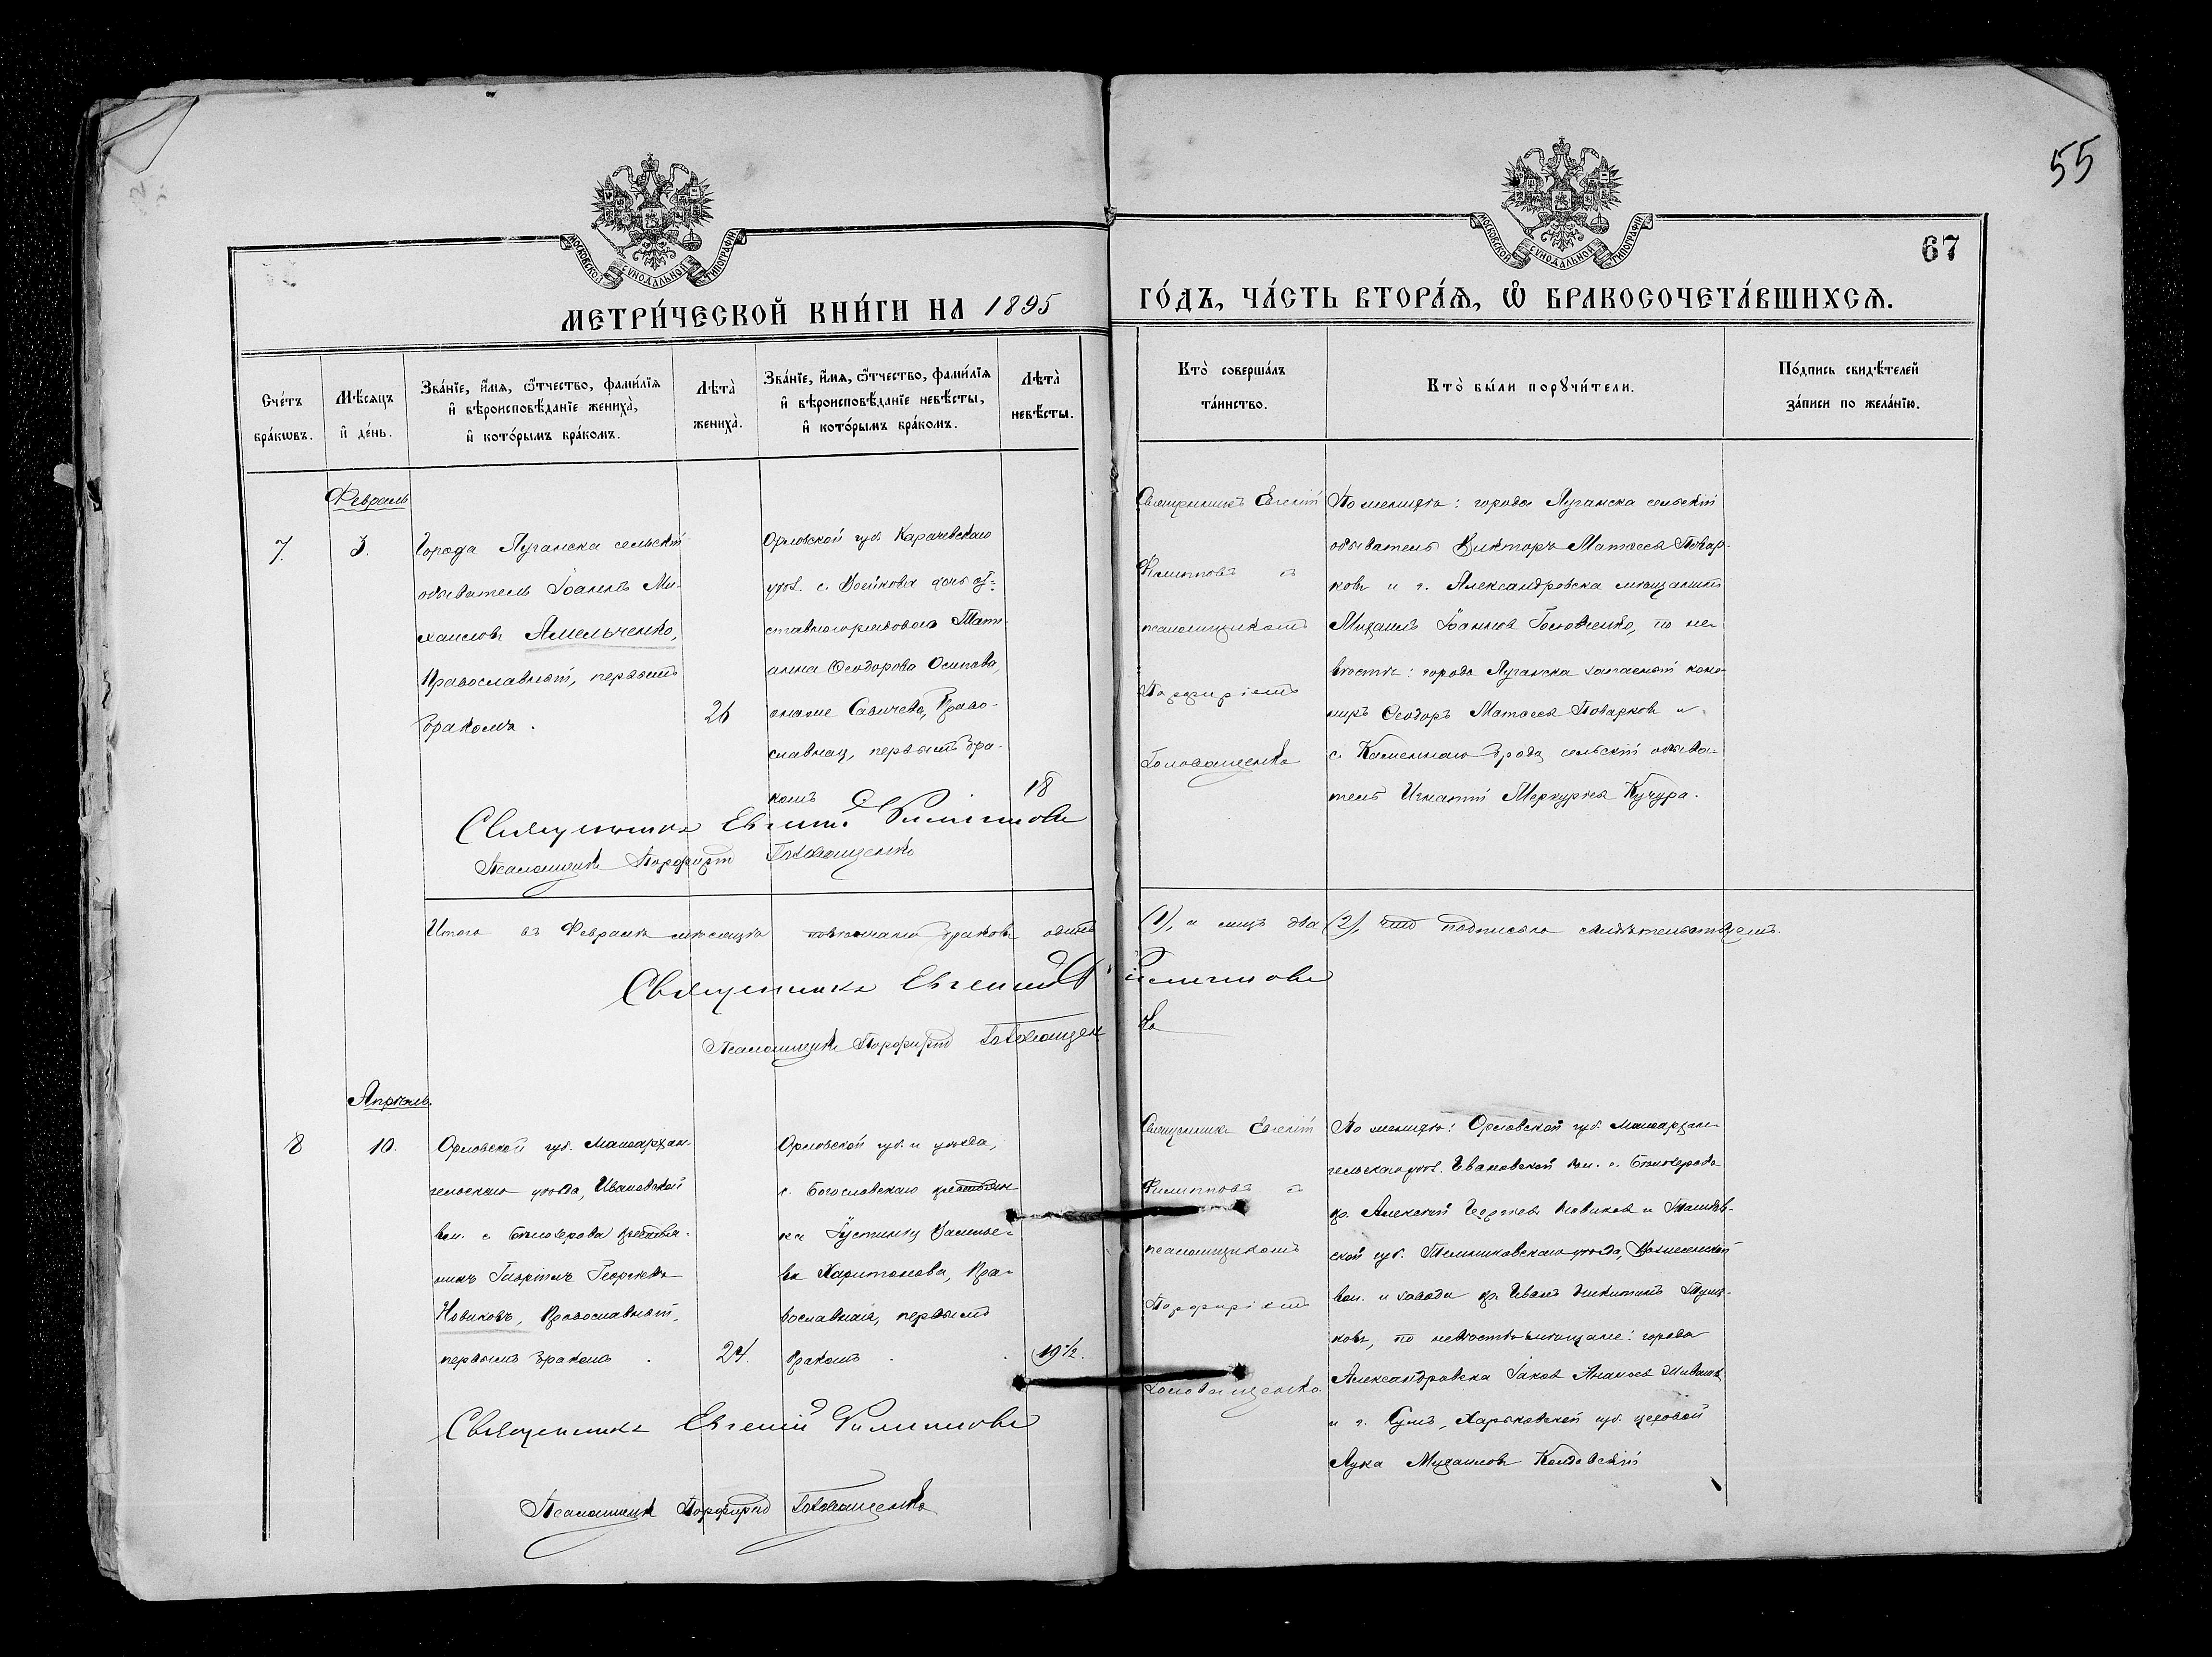 55
67
МОСКОВСКОЙ СѴНОДАЛЬНОЙ ТИПОГРАФІИ
МОСКОВСКОЙ СѴНОДАЛЬНОЙ ТИПОГРАФІИ
МЕТРИ́ЧЕСКОЙ КНИ́ГИ НА 1895
ГО́ДЪ, ЧА́СТЬ ВТОРА́Ѧ, Ѽ БРАКОСОЧЕТА́ВШИХСѦ.
Сче́тъ бра́кѡвъ.
Мѣ́сѧцъ и҆ де́нь.
Зва́нїе, и҆́мѧ, ѻ҆́тчество, фами́лїѧ
и҆ вѣроисповѣ́данїе жениха̀,
и҆ кото́рымъ бра́комъ.
Лѣта̀ жениха̀.
Зва́нїе, и҆́мѧ, ѻ҆́тчество, фами́лїѧ
и҆ вѣроисповѣ́данїе невѣ́сты,
и҆ кото́рымъ бра́комъ.
Лѣта̀ невѣ́сты.
Кто̀ соверша́лъ та́инство.
Кто̀ бы́ли порꙋчи́тели.
По́дпись свидѣ́телей
за́писи по жела́нїю.
Февраль
7.
3.
Города Луганска сельскій
обыватель Іоаннъ Ми-
хаиловъ Амельченко,
Православный, первымъ
бракомъ.
26
Орловской губ. Карачевскаго
уѣз. с. Воейкова дочь от-
ставного рядового Тать-
анна Ѳеодорова Осипова,
онаже Савичева, Право-
славная, первымъ бра-
комъ
18
Священникъ Евгеній
Филипповъ съ
псаломщикомъ
Порфиріемъ
Головащенко
По женихѣ: города Луганска сельскій
обыватель Викторъ Матѳеевъ Повар-
ковъ и г. Александровска мѣщанинъ
Михаилъ Іоанновъ Головченко, по не-
вѣстѣ: города Луганска запасный кано-
ниръ Ѳеодоръ Матѳеевъ Поварковъ и
с. Каменнаго Брода сельскій обыва-
тель Игнатій Меркурьевъ Кучура.
Священникъ Евгеній Филипповъ
Псаломщикъ Порфирій Головащенко
Итого въ Февралѣ мѣсяцѣ повѣнчано браковъ одинъ (1), а лицъ два (2), что подписью свидѣтельствуемъ.
Священникъ Евгеній Филипповъ
Псаломщикъ Порфирій Головащенко
Апрѣль.
8
10.
Орловской губ. Малоархан-
гельскаго уѣзда, Ивановской
вол. с. крестья-
нинъ Георгій Георгіевъ
Новиковъ, Православный,
первымъ бракомъ.
24.
Орловской губ. и уѣзда,
с. Богословскаго крестьян-
ка Іустинія Василье-
ва Харитонова, Пра-
вославная, первымъ
бракомъ.
19½.
Священникъ Евгеній
Филипповъ съ
псаломщикомъ
Порфиріемъ
Головащенко.
По женихѣ: Орловской губ. Малоархан-
гельскаго уѣз. Ивановской вол. с.
кр. Алексѣй Новиковъ и Тамбов-
ской губ. Темниковскаго уѣзда, Вознесенской
вол. и завода кр. Иванъ Никитинъ
по невѣстѣ мѣщане: города
Александровска Іаковъ
и г. Сумъ, Харьковской губ. цеховой
Лука Михаиловъ
Священникъ Евгеній Филипповъ
Псаломщикъ Порфирій Головащенко